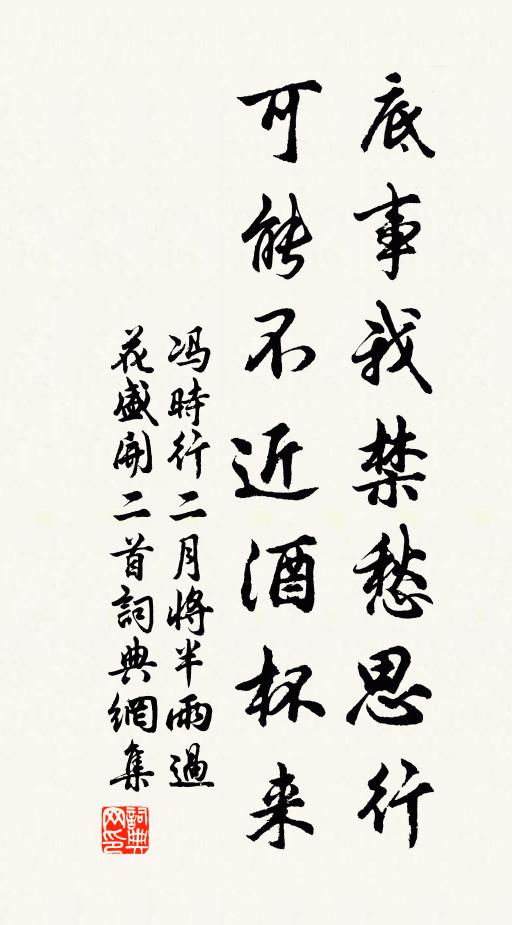 底事我禁愁思行
可能不近酒杯来
冯時行二月将半雨過
花盛開二首詞典網集
詞典網印